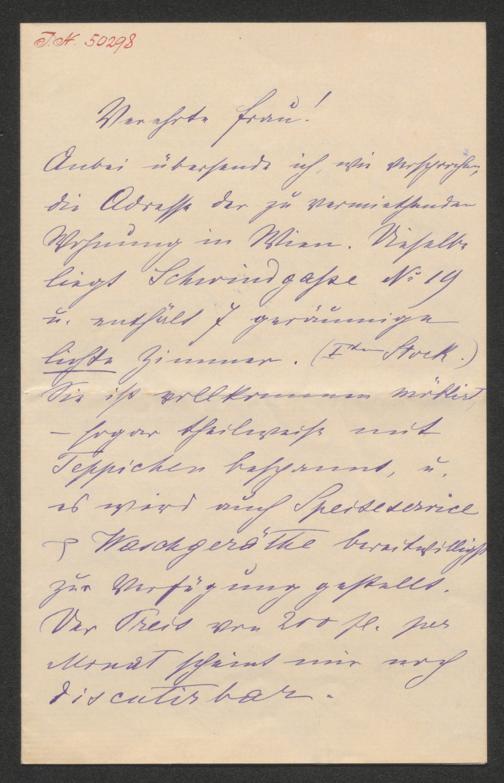 J.N. 50298
Verehrte Frau!
Anbei übersende ich, wie versprochen,
die Adresse der zu vermiethenden
Wohnung in Wien. Dieselbe
liegt Schwindgaße No 19
u. enthält 7 geräumige
lichte Zimmer. (Iten Stock.)
Sie ist vollkommen möblirt
– sogar theilweise mit
Teppichen bespannt, u.
es wird auch Speiseservice
& Waschgeräthe bereitwilligst
zur Verfügung gestellt.
Der Preis von 200 fl. per
Monat scheint mir noch
discutirbar.